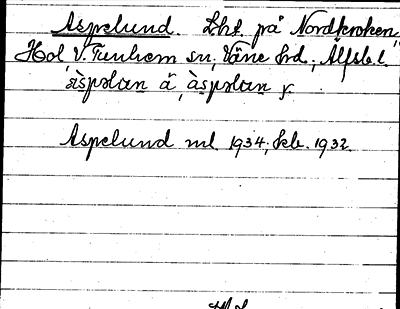 Aspelund. Lht. på Nordkroken
Hol V. Tunhem sn, Väne hrd; Älfsb. l.
àspəlɯn ä, àspəlɯn y
Aspelund ml 1934, skb. 1932.